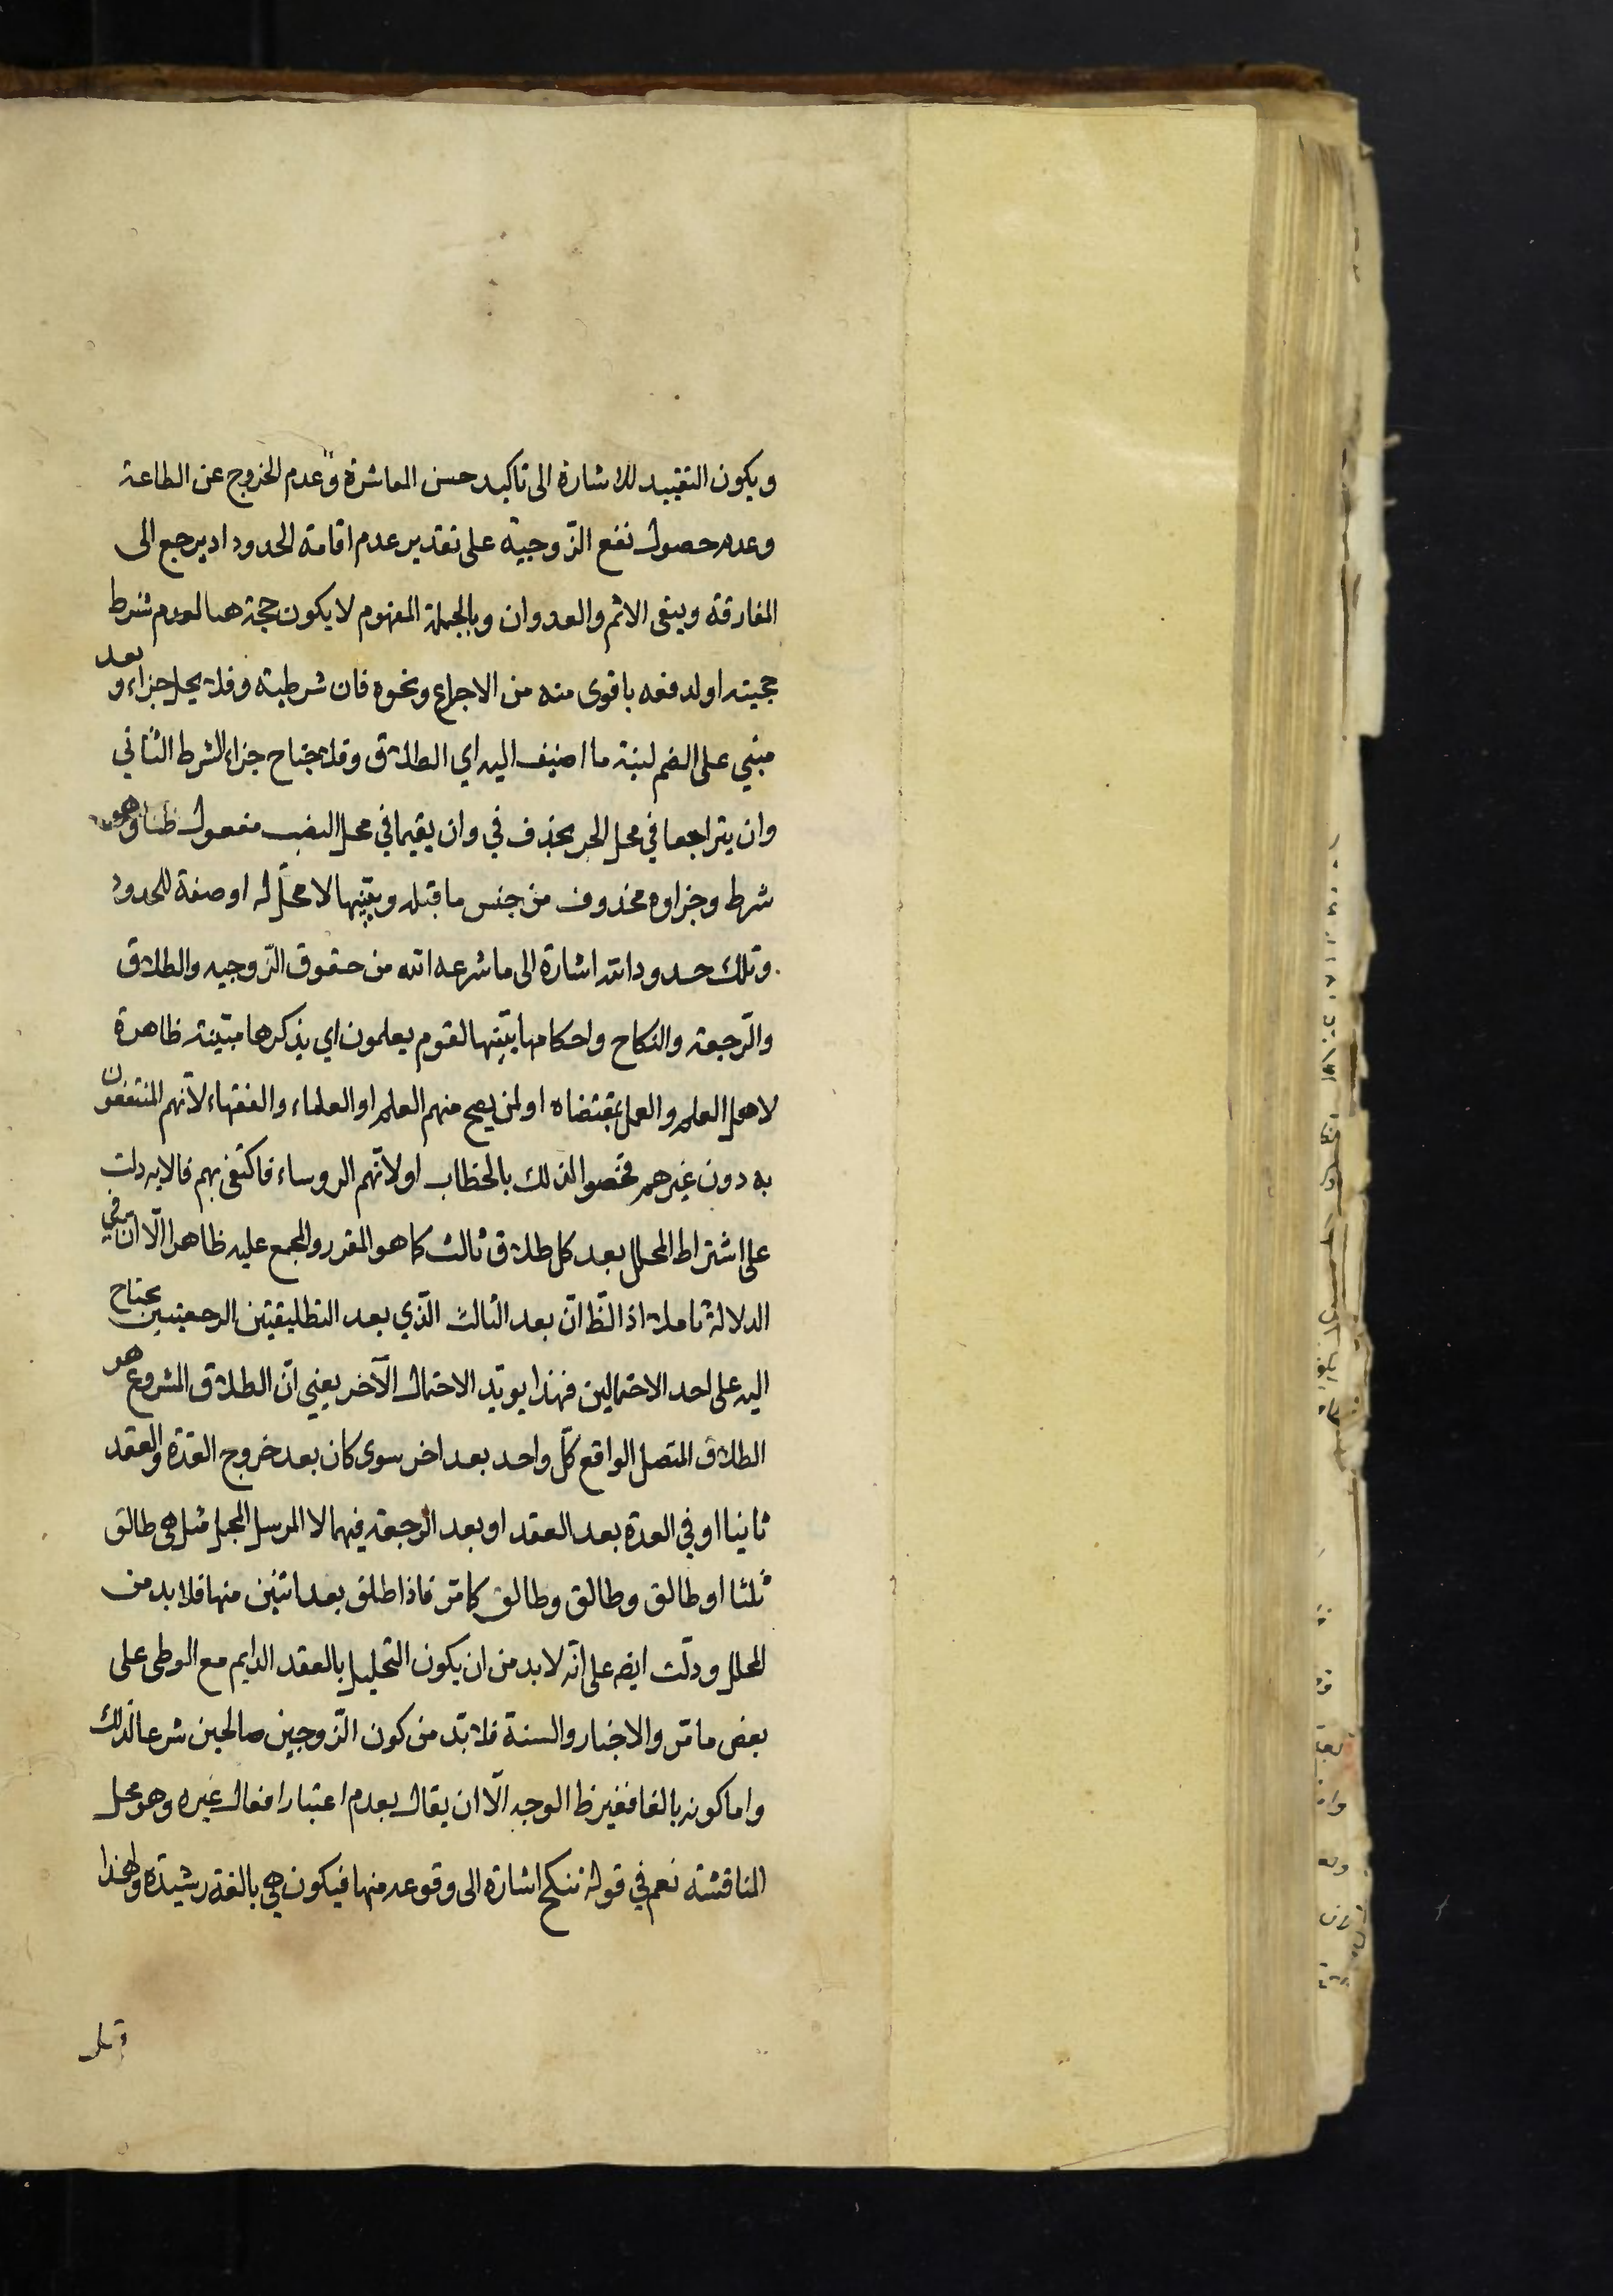 ويكون التقييد للاشارة الى تاكيد حسن المعاشرة وعدم الخروج عن الطاعة
وعدم حصول نفع الزّوجية على تقدير عدم اقامة الحدود اذ يرجع الى
المفارقة ويبقى الاثم والعدوان وبالجملة المفهوم لا يكون حجة هنا لعدم شرط
حجيته او لدفعه باقوى منه من الاجماع ونحوه فان شرطية وفلا يحل جزاء وبعد
مبني على الضم لنية ما اضيف اليه اي الطلاق وفلا جناح جزاء الشرط الثاني
وان يتراجعا في محل الجر بحذف في وان يقيما في محل النصب مفعول ظنا وهو
شرط وجزاوه محذوف من جنس ما قبله ويبيّنها لا محلّ له او صفة للحدود
وتلك حدود الله اشارة الى ما شرعه الله من حقوق الزّوجيه والطلاق
والرّجعة والنكاح واحكامها يبيّنها لقوم يعلمون اي يذكرها مبيّنة ظاهرة
لاهل العلم والعمل بمقتضاه او لمن يصح منهم العلم او العلماء والفقهاء لانّهم المنتفعون
به دون غيرهم فخصوا لذلك بالخطاب او لانّهم الروساء فاكتفى بهم فالايه دلت
على اشتراط المحلل بعد كل طلاق ثالث كما هو المقرر والمجمع عليه ظاهرا الّا انّ في
الدلالة تاملا اذ الظّ انّ بعد الثالث الّذي بعد التطليقتين الرجعيتين يحتاج
اليه على احد الاحتمالين فهذا يويّد الاحتمال الآخر يعني انّ الطلاق المشروع هو
الطلاق المتصل الواقع كلّ واحد بعد اخر سوى كان بعد خروج العدّة والعقد
ثانيا او في العدة بعد العقد او بعد الرجعة فيهما لا المرسل المجمل مثل هي طالق
ثلثا او طالق وطالق وطالق كما مّر فاذا طلق بعد اثنين منها فلا بد من
المحلل ودلّت ايضه على انّه لا بد من ان يكون التحليل بالعقد الدايم مع الوطى على
بعض ما مّر والاخبار والسنة فلا بّد من كون الزّوجين صالحين شرعا لذلك
واما كونه بالغا فغير ظ الوجه الّا ان يقال بعدم اعتبار افعال غيره وهو محل
المناقشة نعم في قوله تنكح اشارة الى وقوعه منها فيكون هي بالغة رشيدة ولهذا
قيل